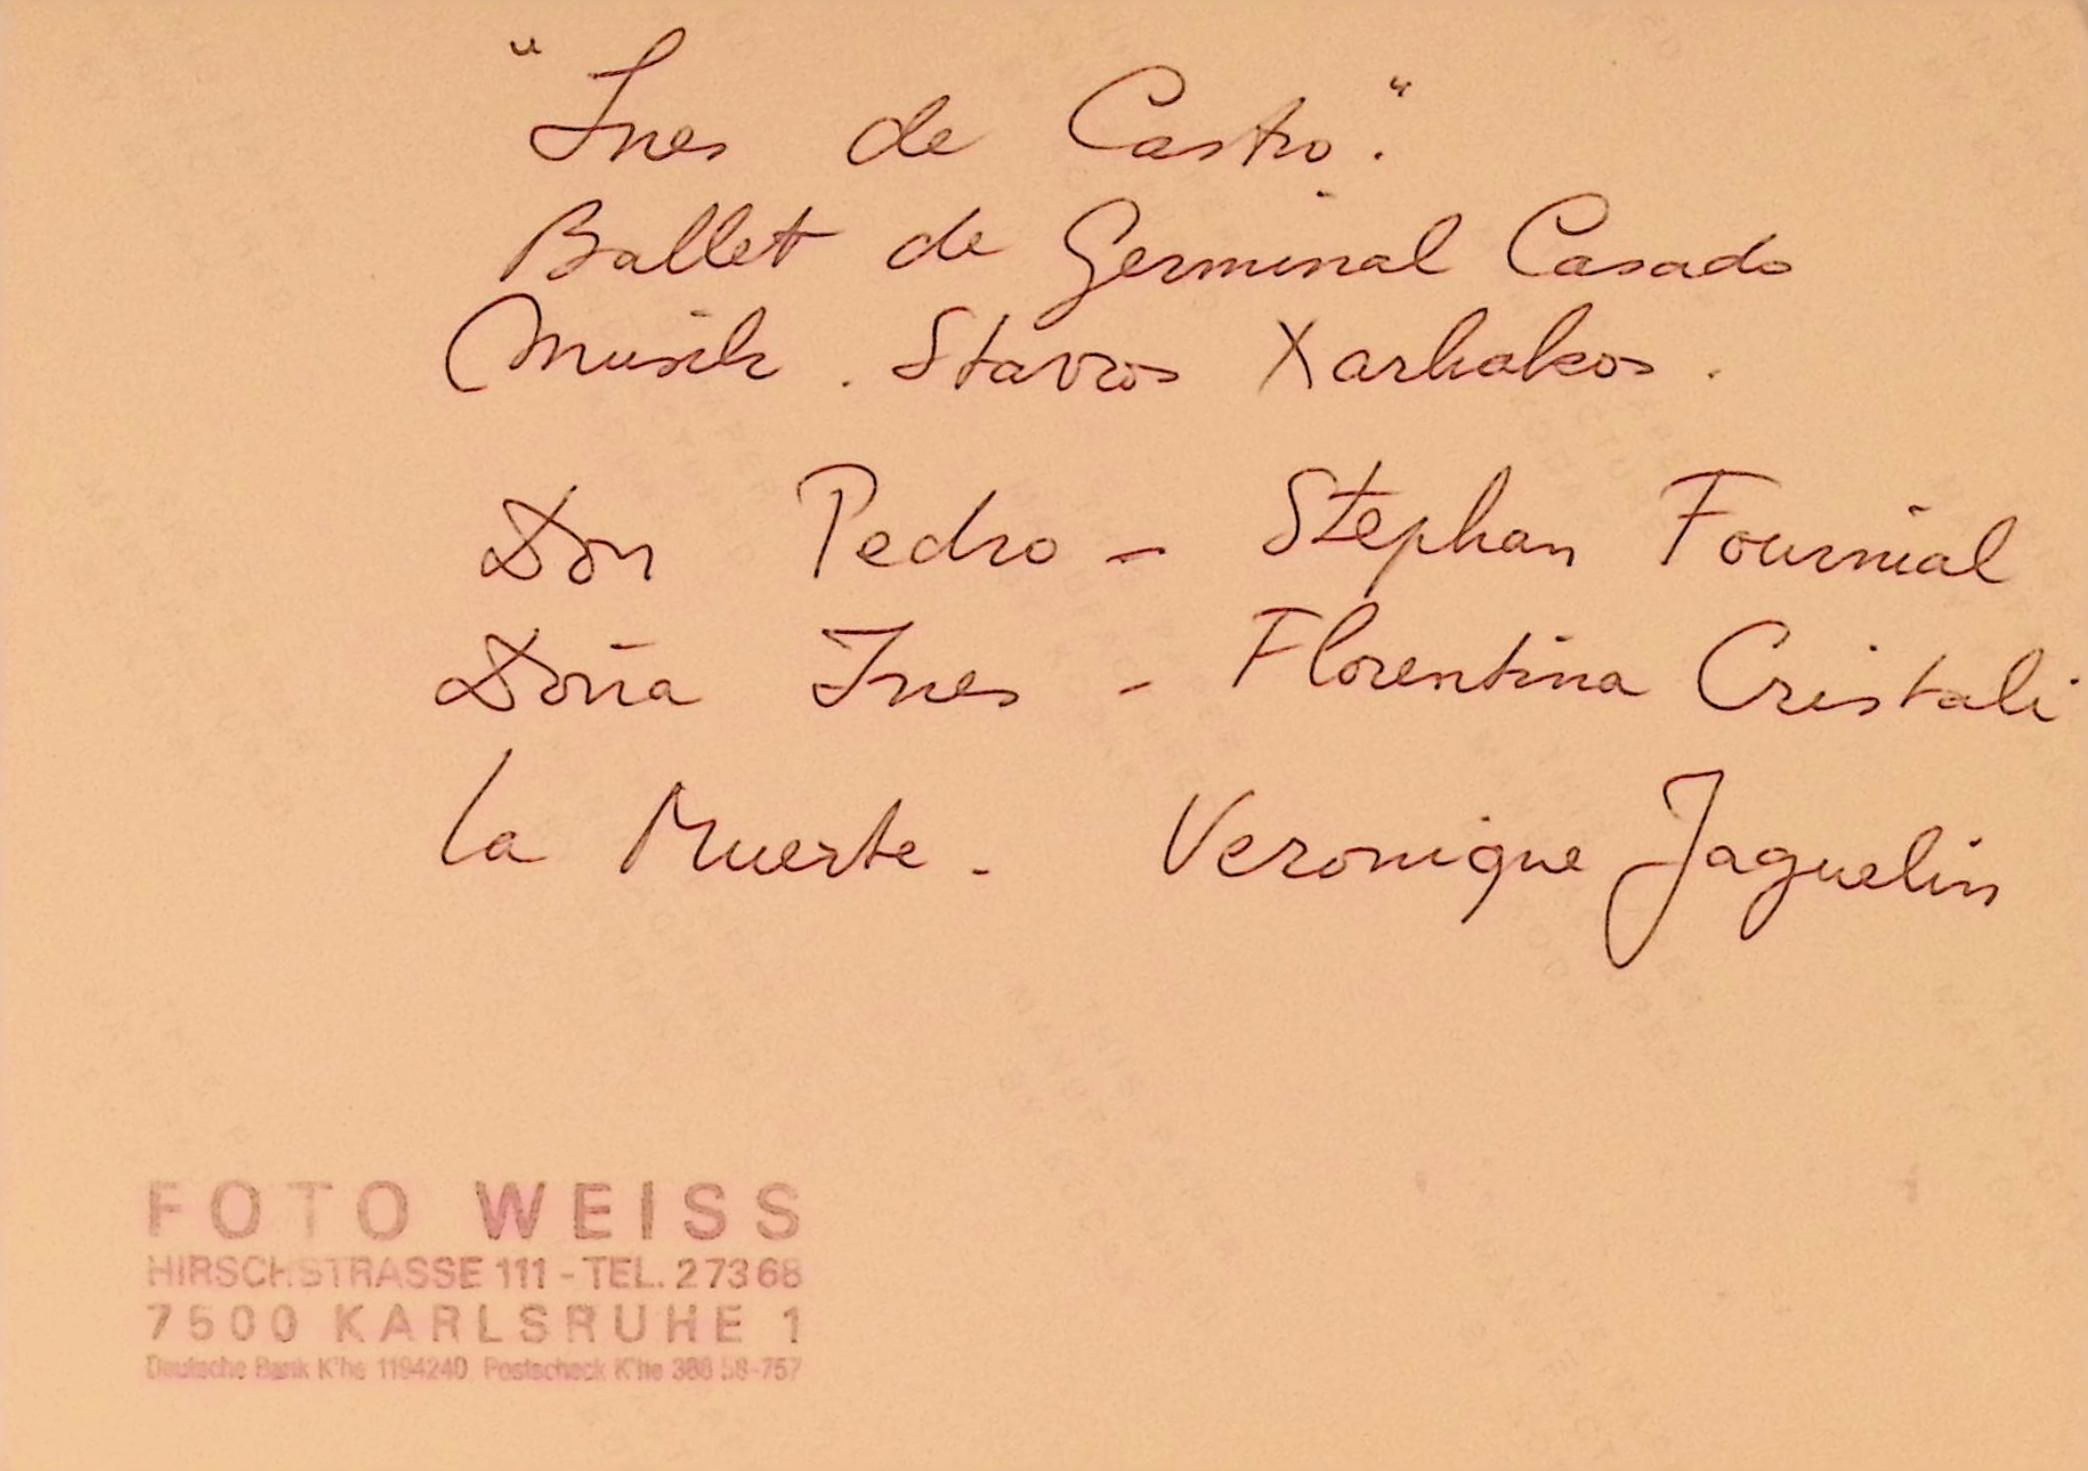 "Ines de Castro."
Ballet de Germinal Casado
Musik. Stavros Xarhakos.
Don Pedro - Stephan Fournial
Doña Ines - Florentina Cristali
La Muerte - Veronique Jaquelin
FOTO WEISS
HIRSCHSTRASSE 111 - TEL. 27368
7500 KARLSRUHE 1
Deutsche Bank K'he 1194240 Postscheck K'he